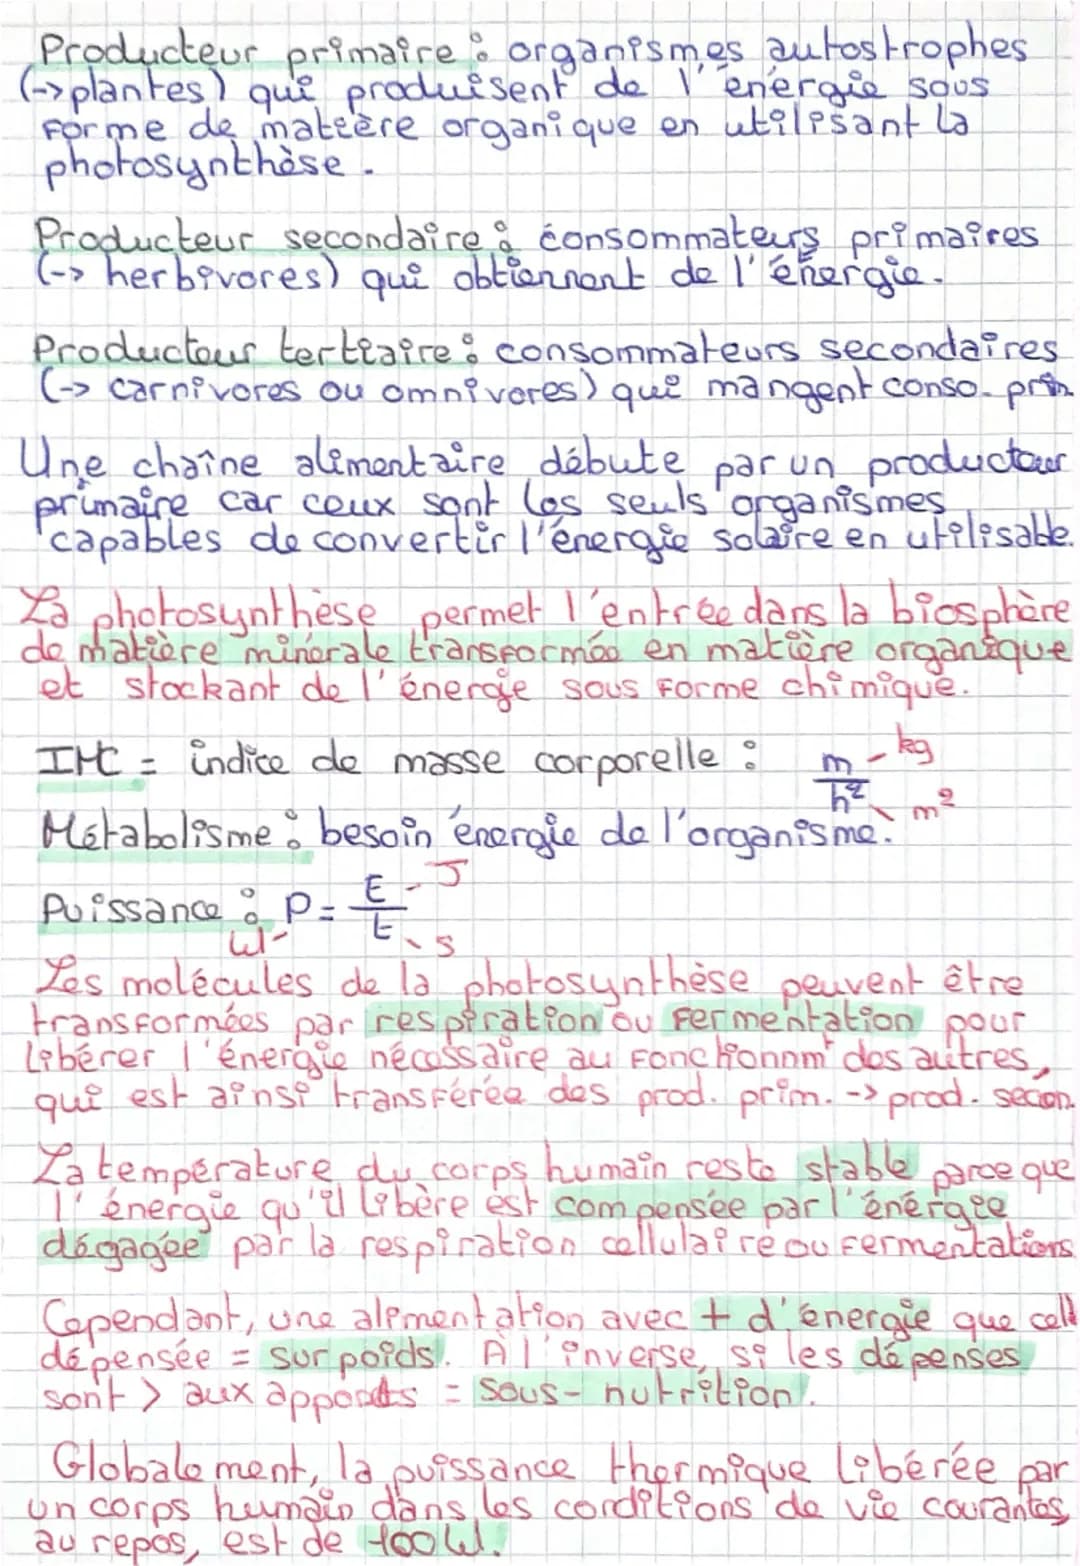 Producteur primaire : organismes autostrophes
(-> plantes) qui produisent de l'énergie sous
forme de matière organique en utilisant la
photosynthèse.
Producteur secondaire : consommateurs primaires
(-> herbivores) qui obtiennent de l'énergie.
Producteur tertiaire : consommateurs secondaires
(-> carnivores ou omnivores) qui mangent conso. prim
Une chaîne alimentaire débute par un producteur
primaire car ceux sont les seuls organismes
capables de convertir l'énergie solaire en utilisable.
La photosynthèse permet l'entrée dans la biosphère
de matière minérale transformée en matière organique
et stockant de l'énergie sous forme chimique.
IMC = indice de masse corporelle : m/h² - kg \ m²
Métabolisme : besoin énergie de l'organisme.
Puissance : P = E/t - J \ s
W -
Les molécules de la photosynthèse peuvent être
transformées par respiration ou fermentation pour
libérer l'énergie nécessaire au fonctionnmt des autres,
qui est ainsi transférée des prod. prim. -> prod. secon.
La température du corps humain reste stable parce que
l'énergie qu'il libère est compensée par l'énergie
dégagée par la respiration cellulaire ou fermentations
Cependant, une alimentation avec + d'énergie que celle
dépensée = surpoids. À l'inverse, si les dépenses
sont > aux apports = sous-nutrition.
Globalement, la puissance thermique libérée par
un corps humain dans les conditions de vie courantes,
au repos, est de 100W.